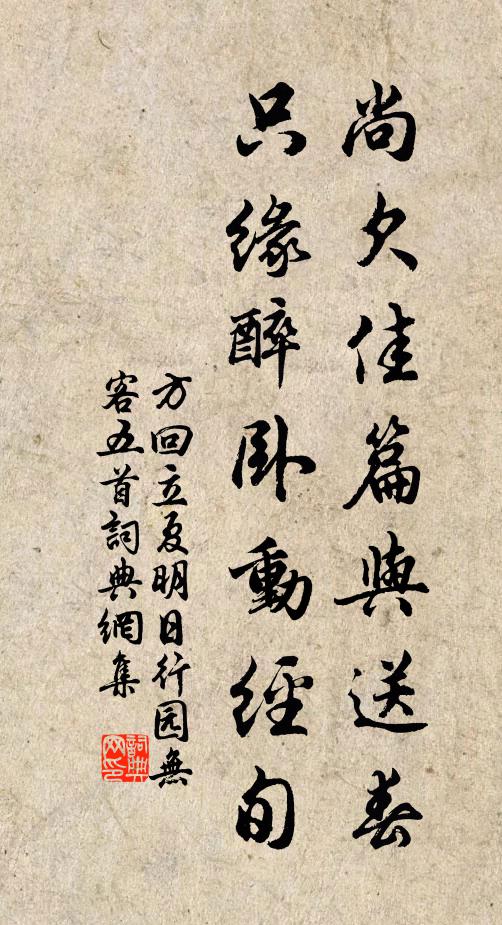 尚欠佳篇與送春
只緣醉卧動經旬
方回立夏明日行园無
客五首詞典網集
詞典
网印